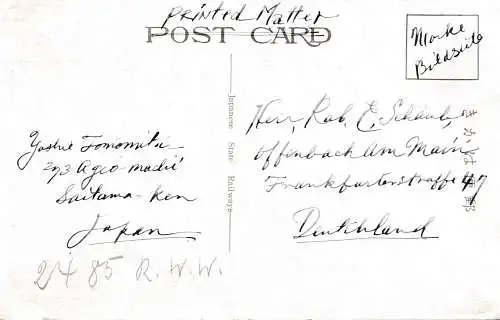 Printed Matter
POST CARD
Marke
Bildseite
Japanese State Railways
Yoshie Tomomitu
273 Ageo-machi
Saitama-Ken
Japan
Herr, Rob. E. Schaub,
Offenbach Am Main
Frankfurterstraffe 47
Deutchland
2485 R.W.W.